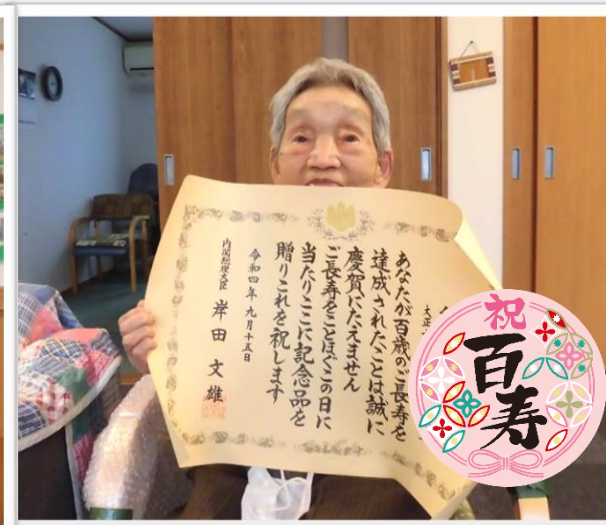 大正
あなたが百歳のご長寿を
達成されたことは誠に
慶賀にたえません
ご長寿をことほぐこの日に
当たりここに記念品を
贈りこれを祝します
令和四年九月十五日
内閣総理大臣 岸田文雄
祝
百寿